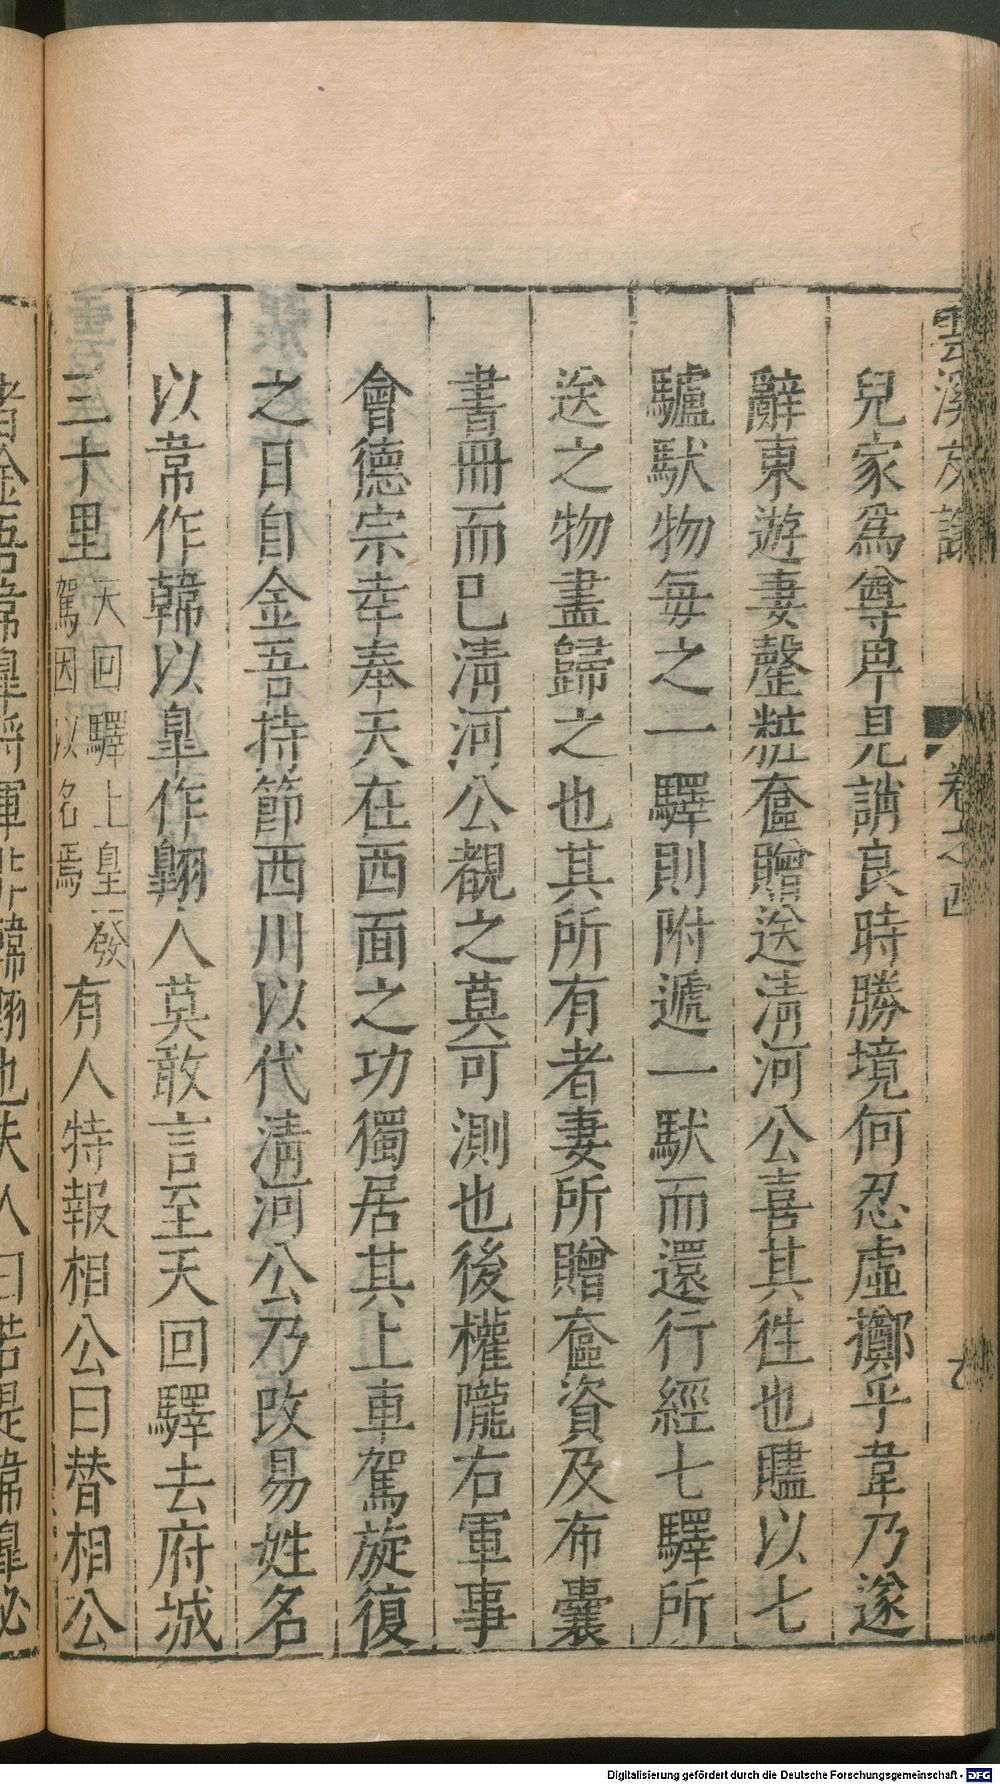 雲溪友議
卷之
兒家爲尊卑見誚良時勝境何忍虛擲乎韋乃遂
辭東遊妻罄粧奩贈送清河公喜其徃也贐以七
驢馱物每之一驛則附遞一馱而還行經七驛所
送之物盡歸之也其所有者妻所贈奩資及布囊
書冊而已清河公覩之莫可測也後權隴右軍事
會德宗幸奉天在西面之功獨居其上車駕旋復
之日自金吾持節西川以代清河公乃改易姓名
以韋作韓以皐作翱人莫敢言至天回驛去府城
三十里
天回驛上皇發
駕因以名焉
有人特報相公曰替相公
者金吾韋皐將軍非韓翱也夫人曰若是韋皐必
Digitalisierung gefördert durch die Deutsche Forschungsgemeinschaft - DFG